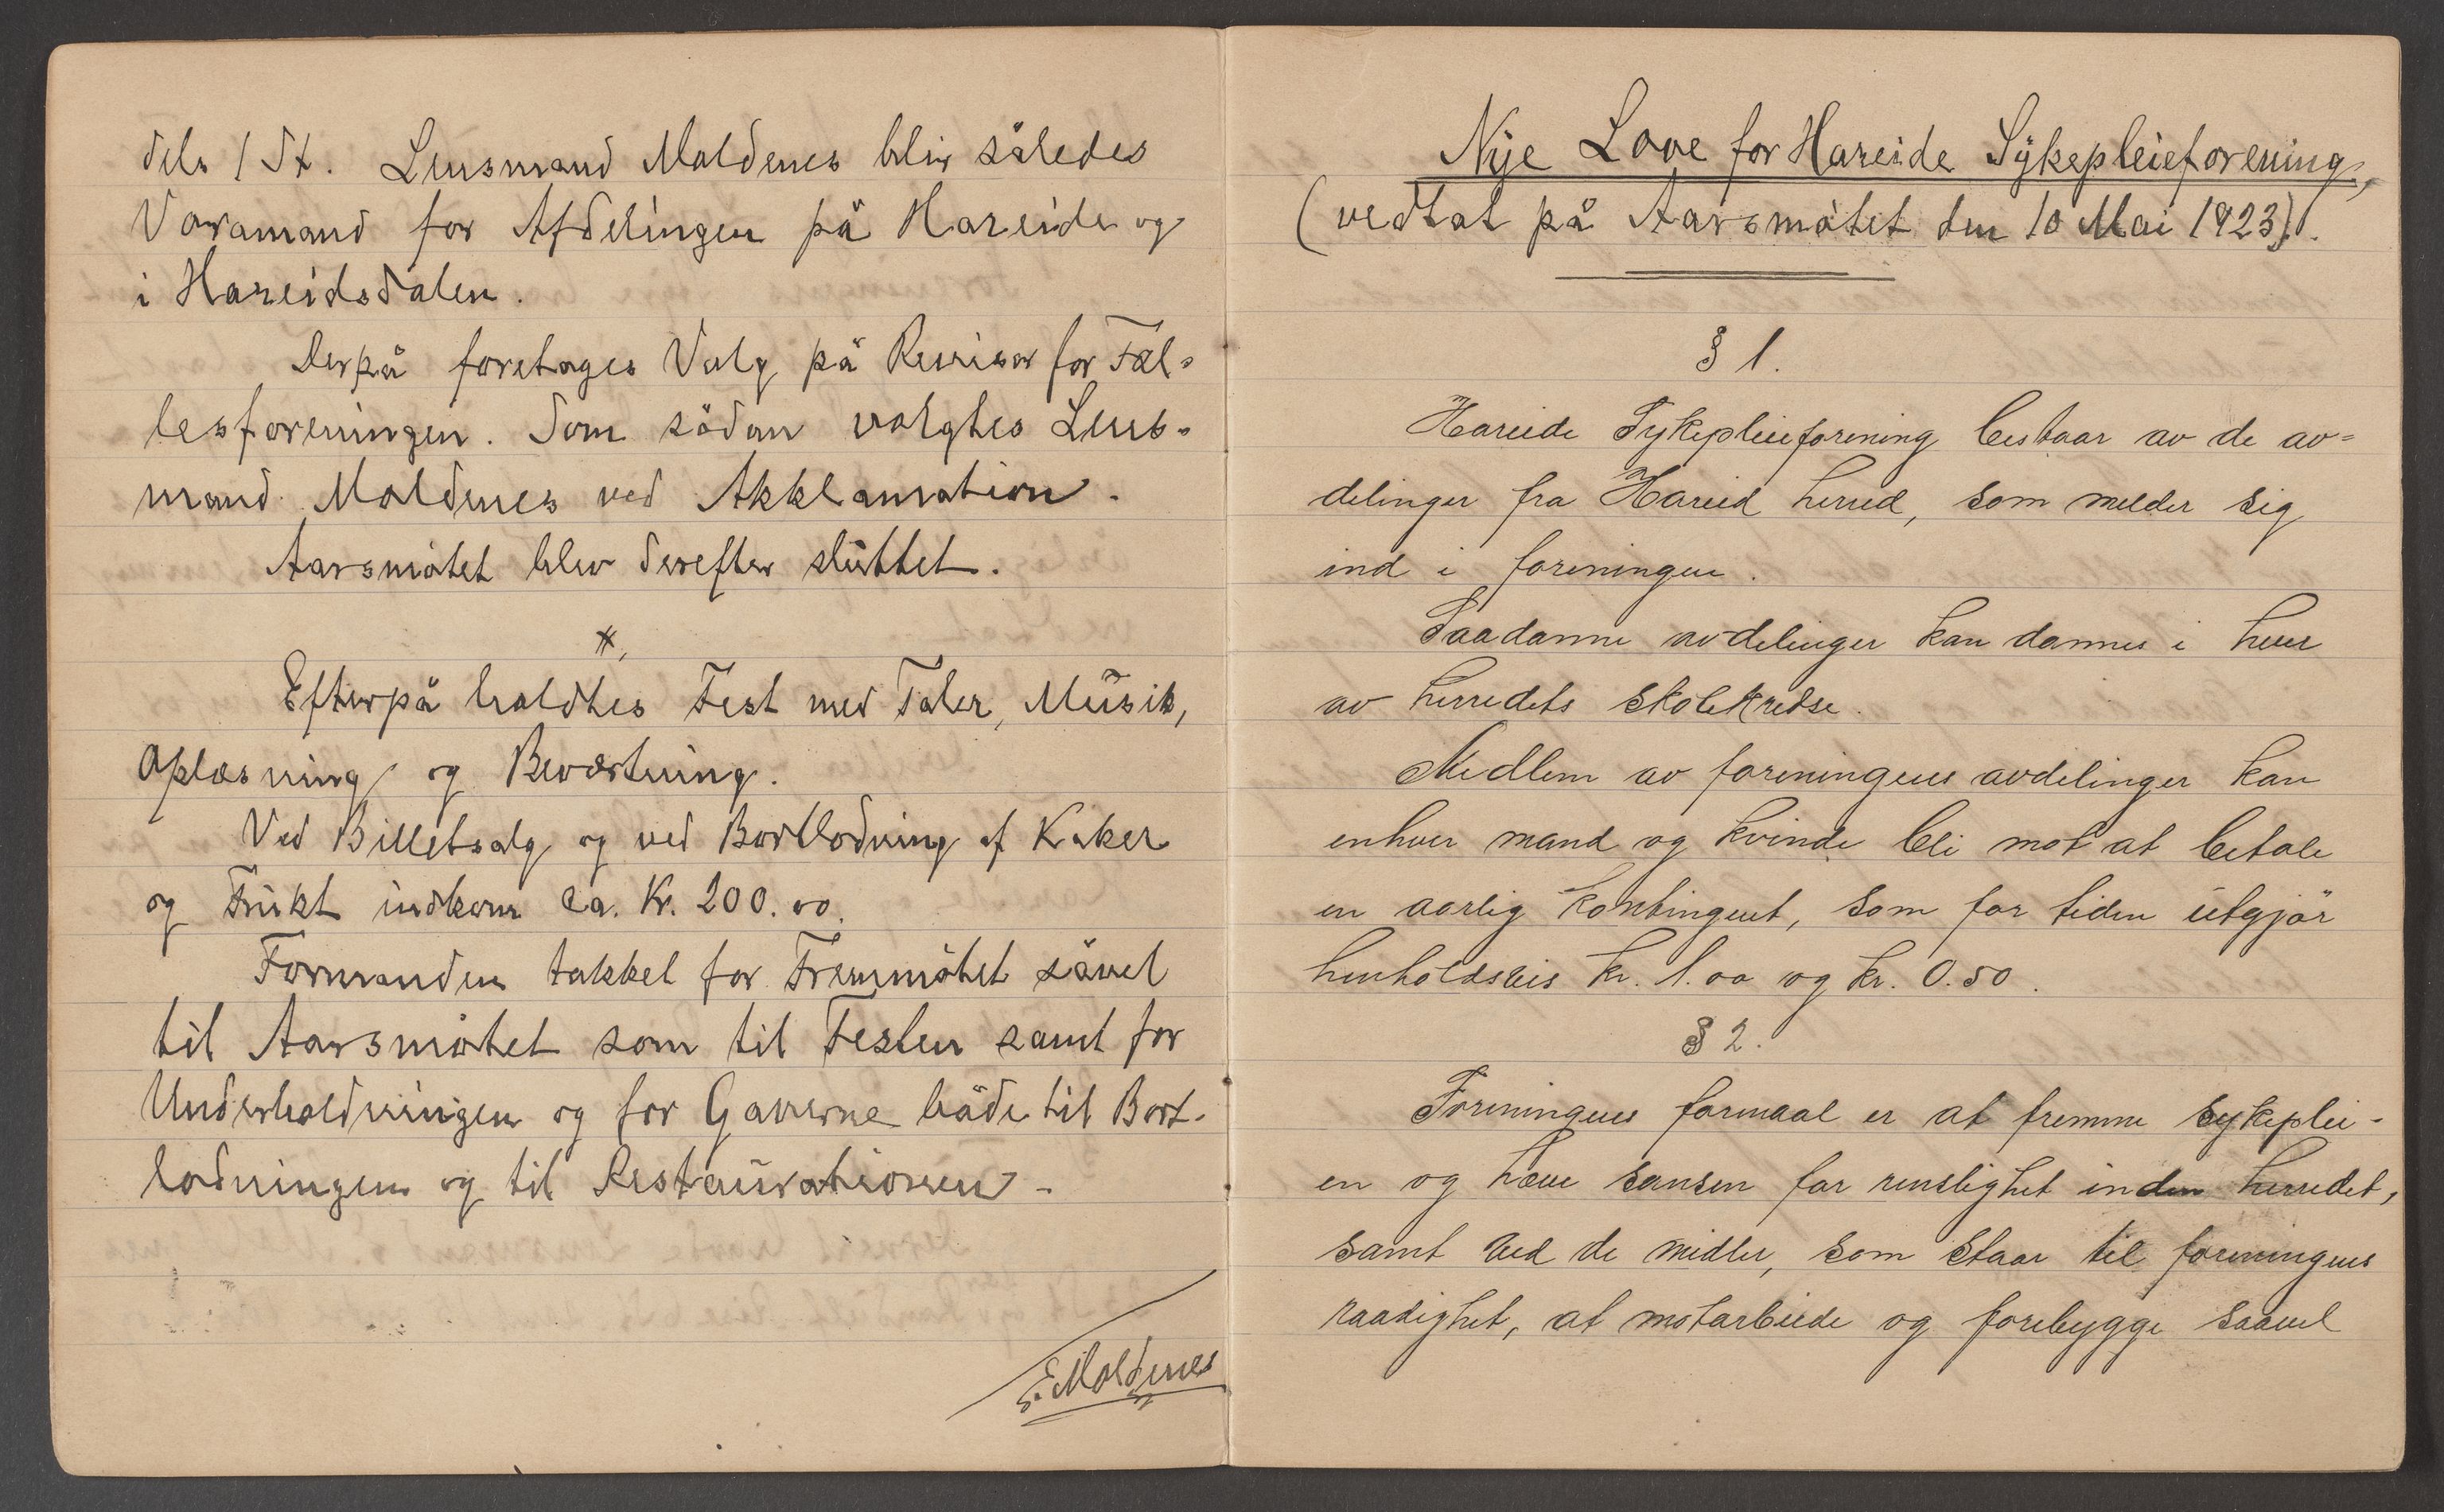 dels 1 St. Lensmand Moldenes bliv således
Varamand for Afdelingen på Hareide og
i Hareidsdalen.
Derpå foretages Valg på Revisor for Fæl-
lesforeningen. Som sådan valgtes Lens-
mand Moldenes ved Akklamation.
Aarsmøtet blev derefter sluttet.
Efterpå holdtes Fest med Taler, Musik,
Oplæsning og Beværtning.
Ved Billetsalg og ved Bortlodning af Kaker
og Frukt indkom ca. Kr. 200.00.
Formanden takket for Fremmøtet såvel
til Aarsmøtet som til Festen samt for
Underholdningen og for Gaverne både til Bort-
lodningen og til Restaurationen.
E. Moldenes
Nye Love for Hareide Sykepleieforening,
(vedtat på Aarsmøtet den 10 Mai 1923).
§ 1.
Hareide Sykepleieforening bestaar av de av-
delinger fra Hareid herred, som melder sig
ind i foreningen.
Saadanne avdelinger kan dannes i hver
av herredets skolekredse.
Medlem av foreningens avdelinger kan
enhver mand og kvinde bli mot at betale
en aarlig kontingent, som for tiden utgjør
henholdsvis kr. 1.00 og kr. 0.50.
§ 2.
Foreningens formaal er at fremme sykeplei-
en og hæve sansen for renslighet inden herredet,
samt ved de midler, som staar til foreningens
raadighet, at motarbeide og forebygge saavel